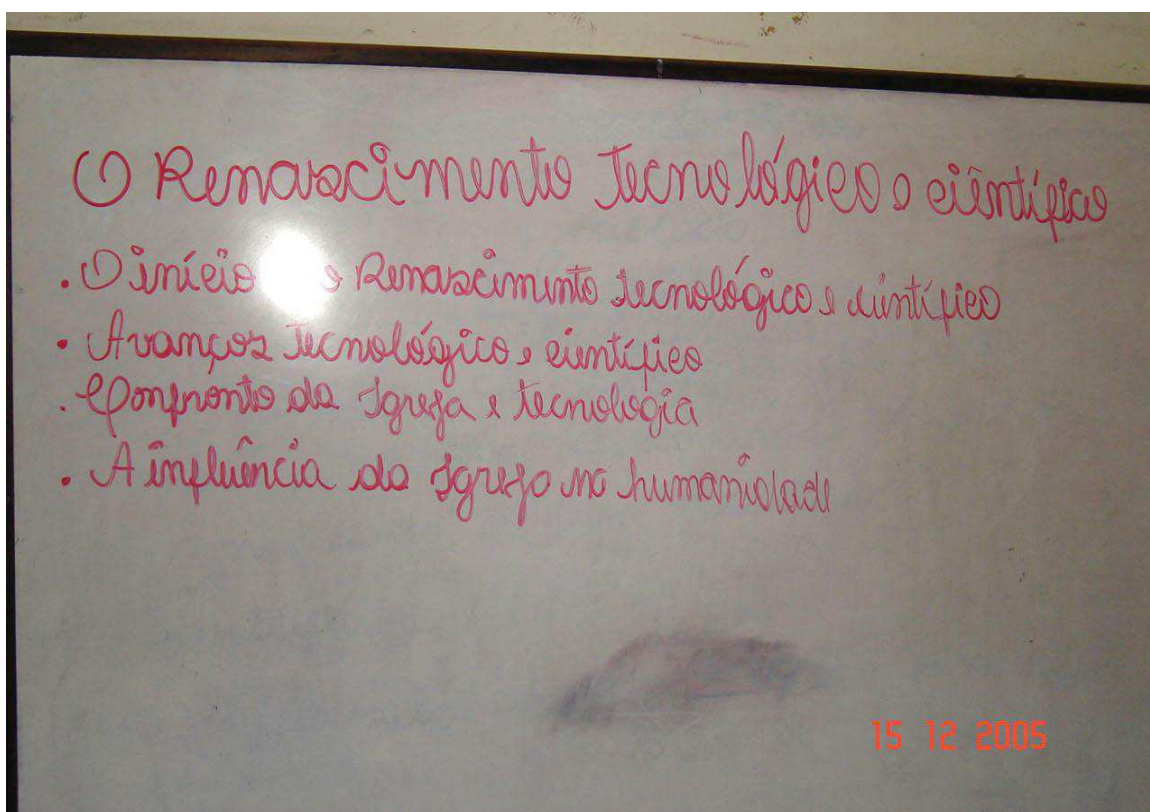 O Renascimento tecnológico e científico
. O início do Renascimento tecnológico e científico
. Avanços tecnológico e científico
. Confronto da Igreja e tecnologia
. A influência da Igreja na humanidade
15 12 2005